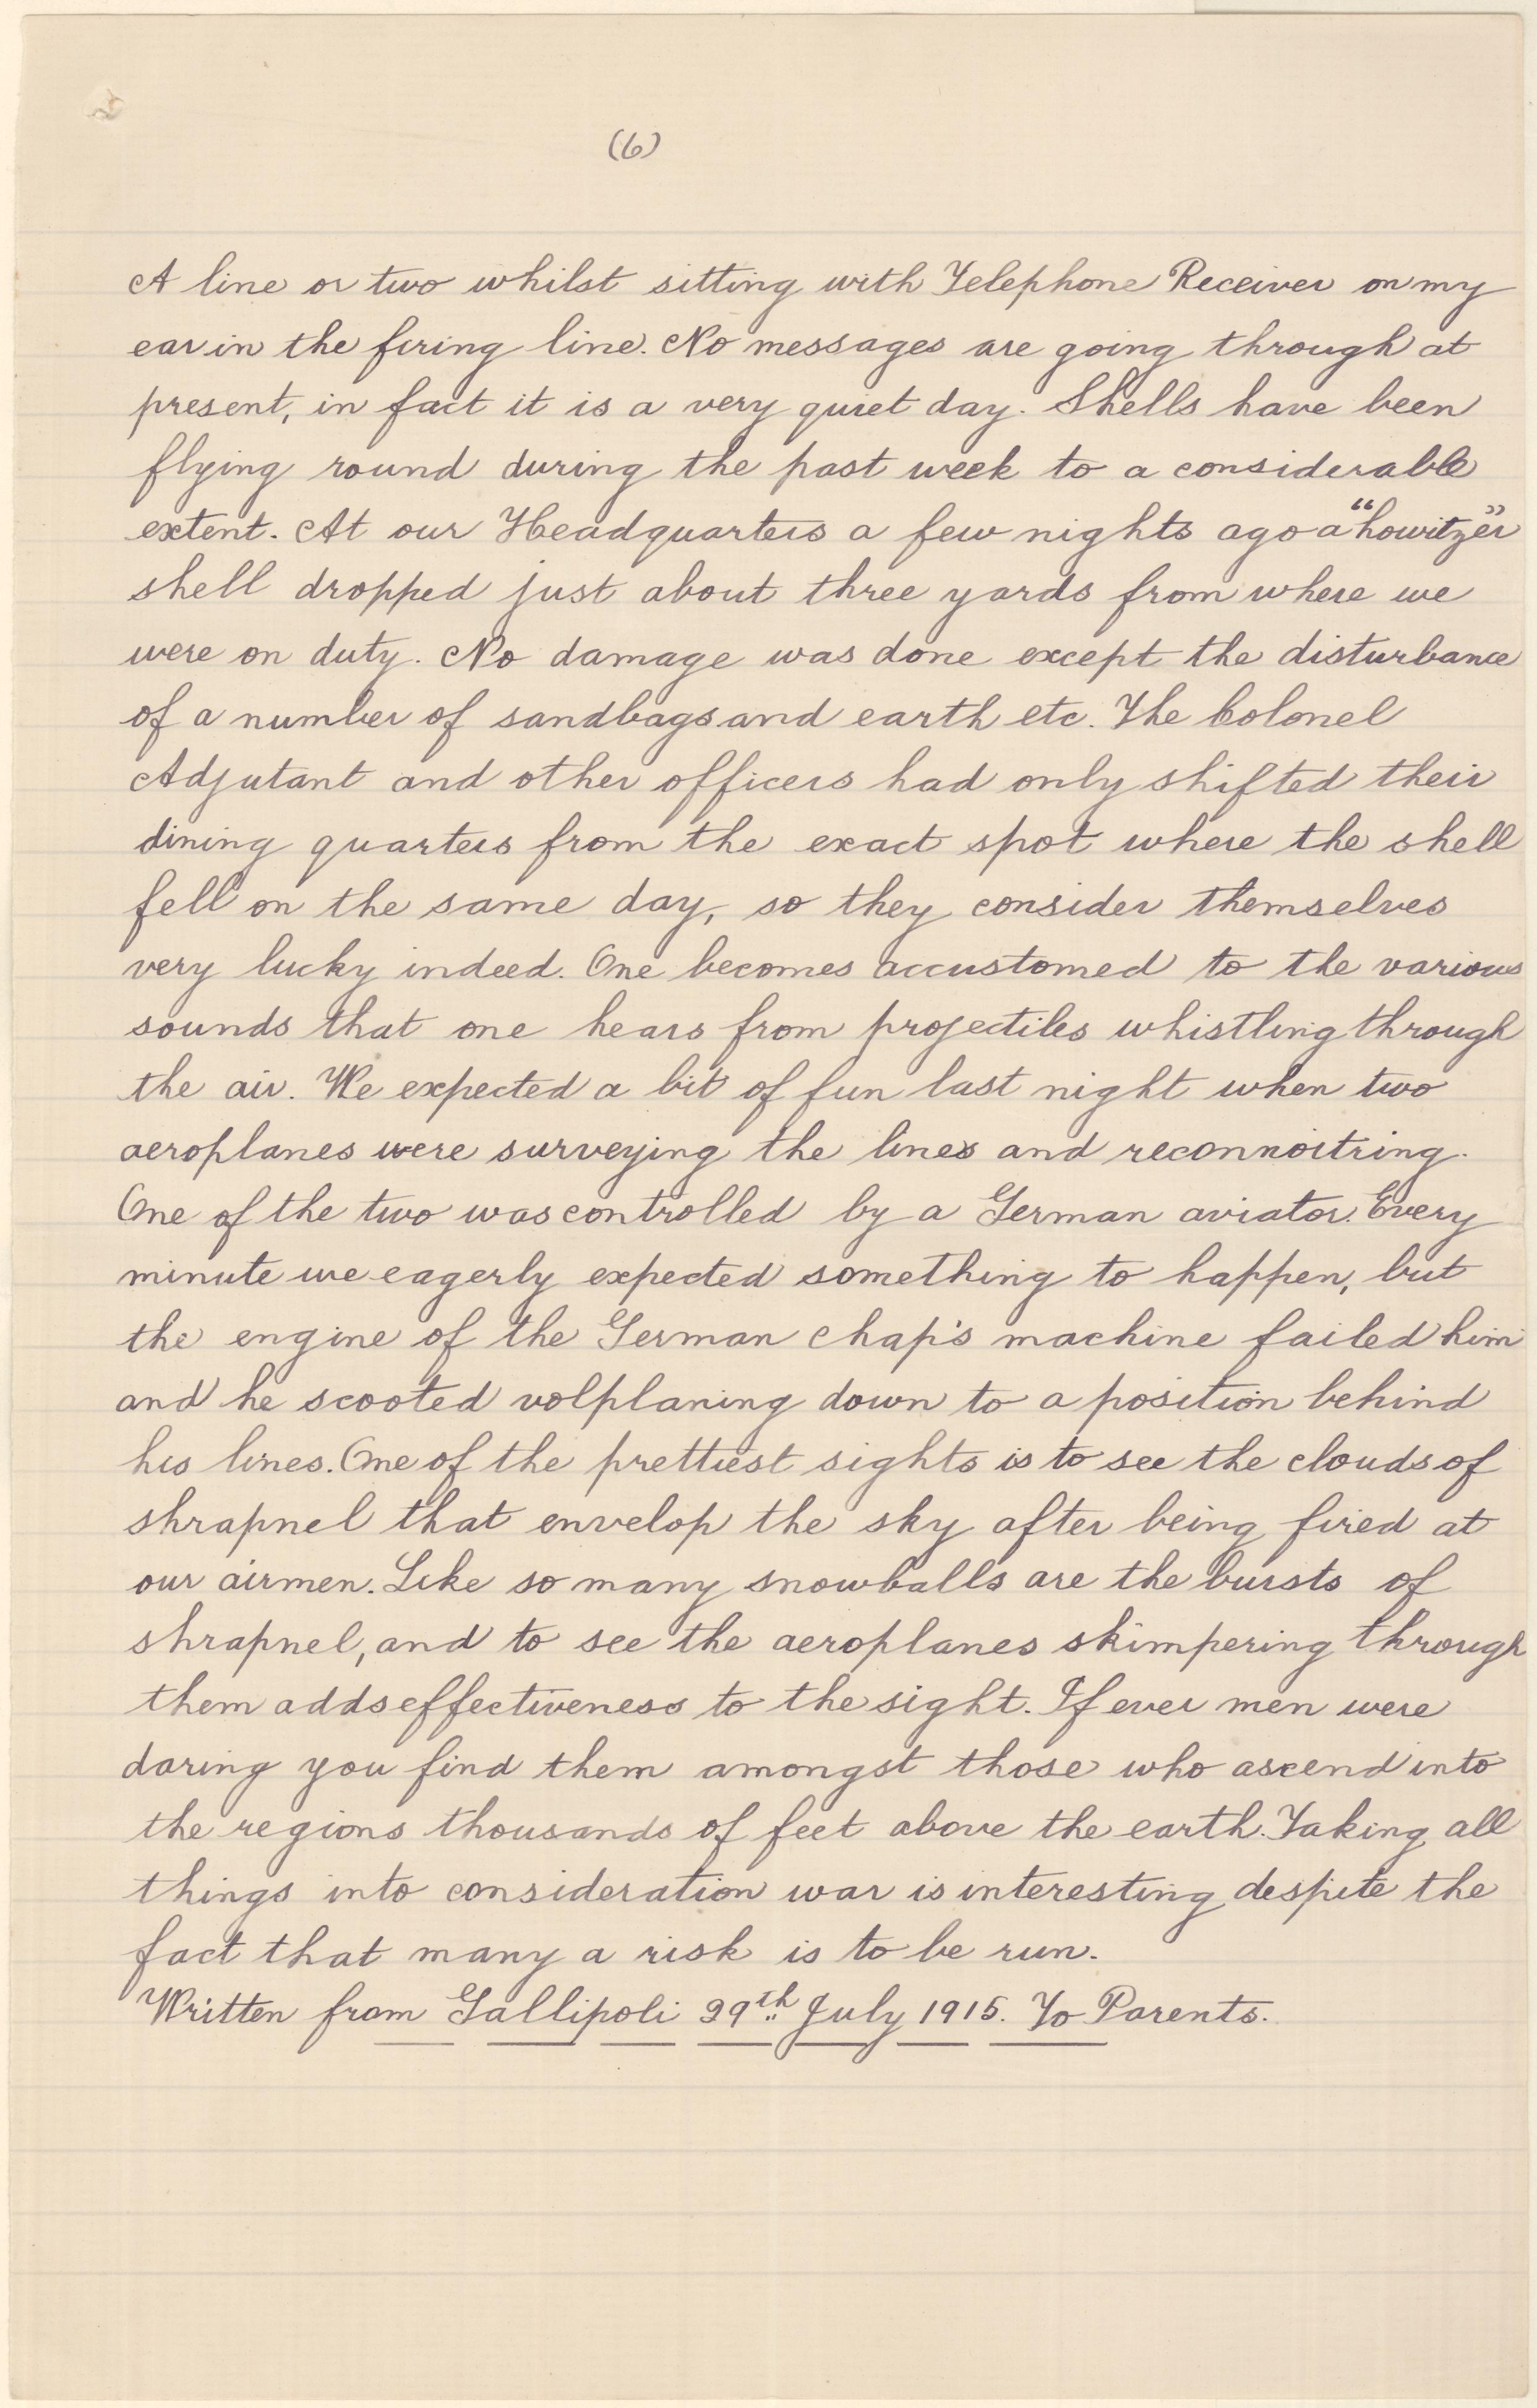 (6)
A line or two whilst sitting with Telephone Receiver on my
ear in the firing line. No messages are going through at
present, in fact it is a very quiet day. Shells have been
flying round during the past week to a considerable
extent. At our Headquarters a few nights ago a "howitzer"
shell dropped just about three yards from where we
were on duty. No damage was done except the disturbance
of a number of sandbags and earth etc. The Colonel
Adjutant and other officers had only shifted their
dining quarters from the exact spot where the shell
fell on the same day, so they consider themselves
very lucky indeed. One becomes accustomed to the various
sounds that one hears from projectiles whistling through
the air. We expected a bit of fun last night when two
aeroplanes were surveying the lines and reconnoitring.
One of the two was controlled by a German aviator. Every
minute we eagerly expected something to happen, but
the engine of the German chap's machine failed him
and he scooted volplaning down to a position behind
his lines. One of the prettiest sights is to see the clouds of
shrapnel that envelop the sky after being fired at
our airmen. Like so many snowballs are the bursts of
shrapnel, and to see the aeroplanes skimpering through
them adds effectiveness to the sight. If ever men were
daring you find them amongst those who ascend into
the regions thousands of feet above the earth. Taking all
things into consideration war is interesting despite the
fact that many a risk is to be run.
Written from Gallipoli 29th July 1915. To Parents.